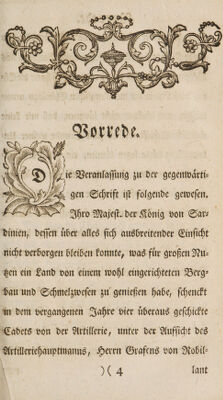 Vorrede.
Die Veranlassung zu der gegenwärti-
gen Schrift ist folgende gewesen.
Ihro Majest. der König von Sar-
dinien, dessen über alles sich ausbreitender Einsicht
nicht verborgen bleiben konnte, was für großen Nu-
tzen ein Land von einem wohl eingerichteten Berg-
bau und Schmelzwesen zu genießen habe, schenckt
in dem vergangenen Jahre vier überaus geschickte
Cadets von der Artillerie, unter der Aufsicht des
Artilleriehauptmanns, Herrn Grafens von Robil-
)( 4
lant